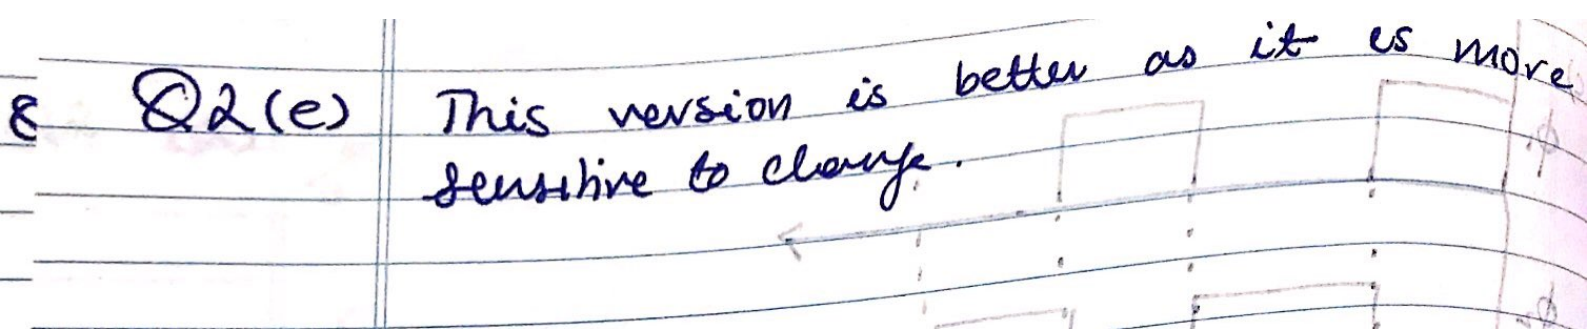 Q2(e) This version is better as it is more
sensitive to change.